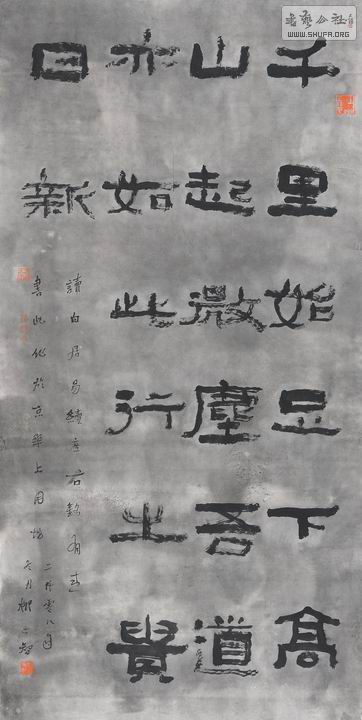 書藝公社
WWW.SHUFA.ORG
千里始足下高
山起微塵吾道
亦如此行之貴
日新
讀白居易續座右銘有感
書此作於京華上
零八年
冬月